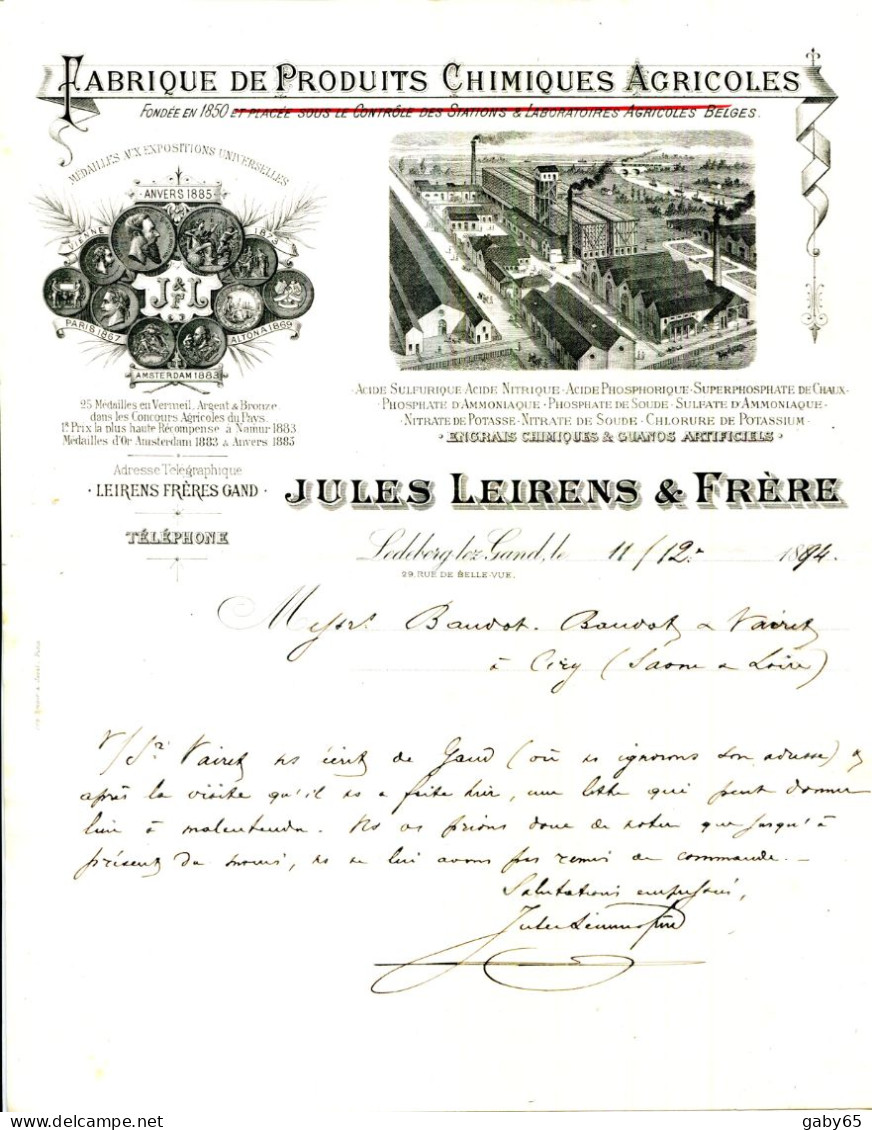 FABRIQUE DE PRODUITS CHIMIQUES AGRICOLES
FONDÉE EN 1850 ET PLACÉE SOUS LE CONTRÔLE DES STATIONS & LABORATOIRES AGRICOLES BELGES.
MÉDAILLES AUX EXPOSITIONS UNIVERSELLES
ANVERS 1885
VIENNE 1873
J & L
F
PARIS 1867
ALTONA 1869
AMSTERDAM 1883
25 Médailles en Vermeil, Argent & Bronze
dans les Concours Agricoles du Pays.
1er Prix la plus haute Récompense à Namur 1883
Médailles d'Or Amsterdam 1883 & Anvers 1885
Adresse Télégraphique
· LEIRENS FRÈRES GAND ·
TÉLÉPHONE
· ACIDE SULFURIQUE ACIDE NITRIQUE · ACIDE PHOSPHORIQUE · SUPERPHOSPHATE DE CHAUX ·
· PHOSPHATE D'AMMONIAQUE · PHOSPHATE DE SOUDE · SULFATE D'AMMONIAQUE ·
· NITRATE DE POTASSE · NITRATE DE SOUDE · CHLORURE DE POTASSIUM ·
· ENGRAIS CHIMIQUES & GUANOS ARTIFICIELS ·
JULES LEIRENS & FRÈRE
Ledeberg lez Gand, le 11/12 1894.
29, RUE DE BELLE-VUE.
Messrs Baudot. Baudot & Vairet
à Ciry (Saone & Loire)
V/Sr Vairet ns écrit de Gand (où ns ignorons son adresse) &
après la visite qu'il ns a faite hier, une lettre qui peut donner
lieu à malentendu. Ns vs prions donc de noter que jusqu'à
présent du moins, ns ne lui avons pas remis de commande.
Salutations empressées,
Jules Leirens & frère
gaby65